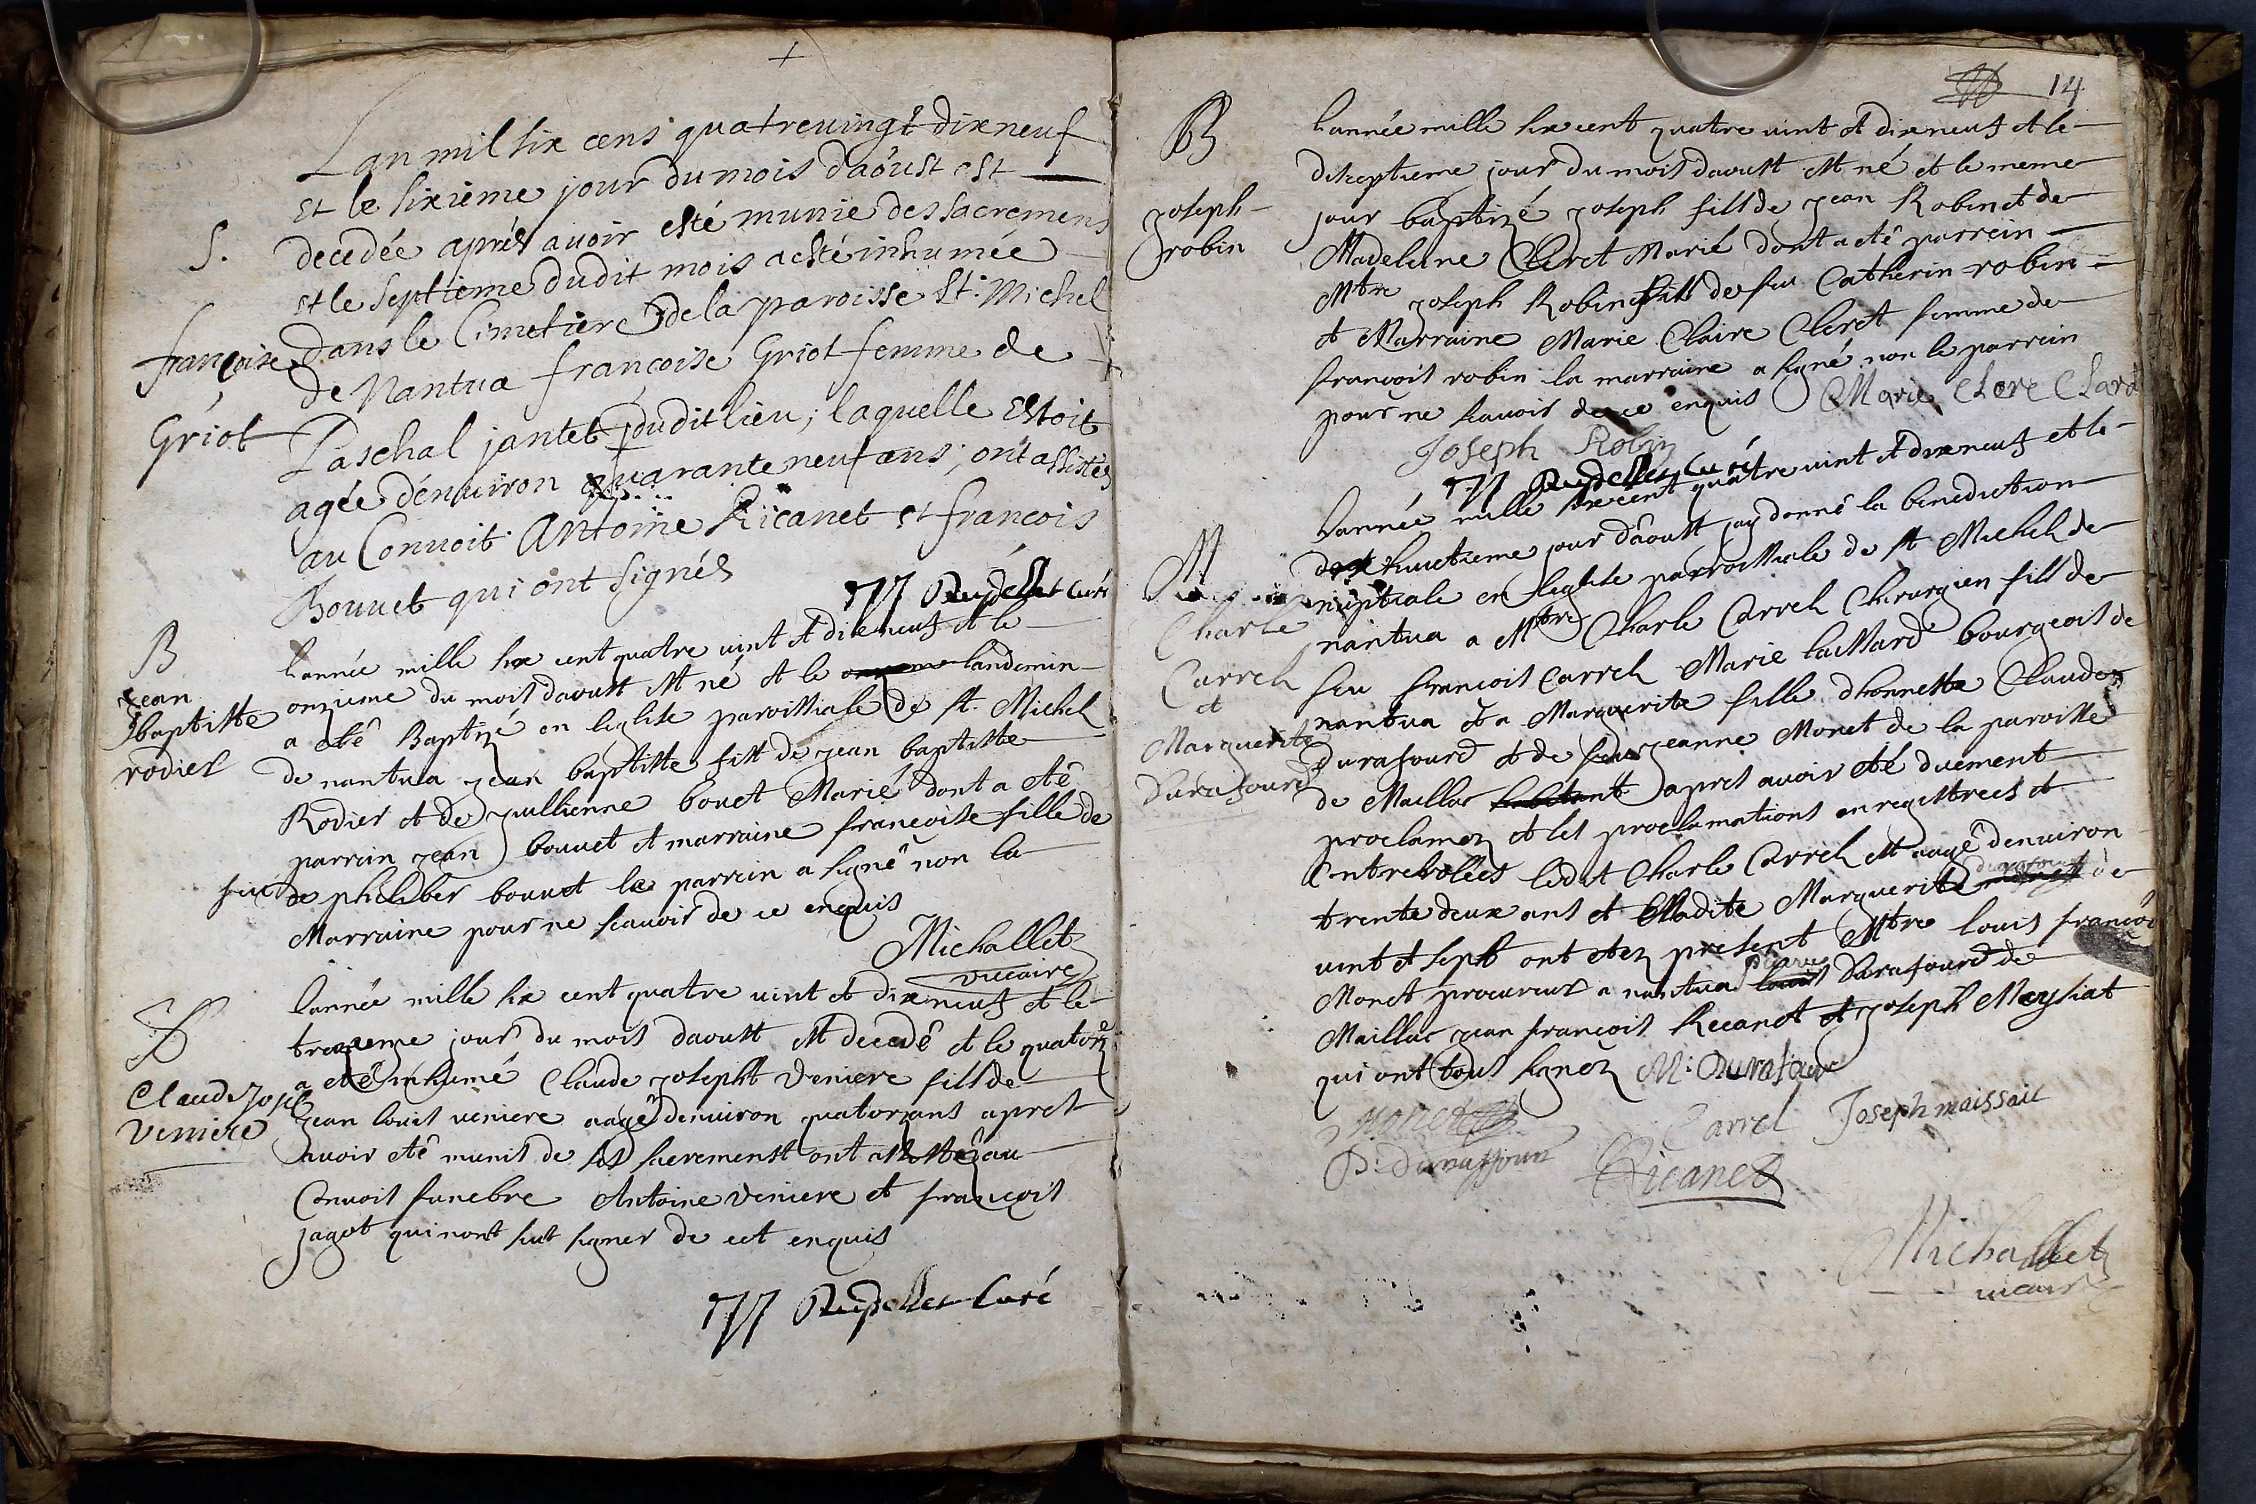 S.
françoise
Griot
Lan mil six cens quatrevingt dixneuf
et le sixième jour du mois daôust est
decedée aprés avoir esté munie des sacremens
et le septieme dudit mois a esté inhumée
dans le Cimetiere de la paroisse St. Michel
de Nantua françoise Griot femme de
Paschal jantet dudit lieu, laquelle Estoit
agée dénuiron quarante neuf ans; ont assistés
au Convoit Antoine Ricanet et francois
Bouuet qui ont signés
Curé
B
jean
baptiste
rodier
lannée mille six cent quatre uint et dixneuf et le
onzieme du mois daoust est né et le landemin
a etê Baptizé en leglise paroissiale de st. Michel
de nantua jean baptiste fils de jean baptiste
Rodier et de jullienne bouet Marié dont a etê
parrain jean bouuet et marraine francoise fille de
feu de philiber bouuet le parrein a signê non la
Marraine pour ne scauoir de ce enquis
Michallet
vicaire
S
Claude Joseph
Veniere
lannée mille six cent quatre uint et dixneuf et le
treizeme jour du mois daoust est decedê et le quatorz
a etê inhumé Claude josepht Veniere fils de
jean louis veniere aagê denuiron quatorzans apres
auoir etê munis de ses sacrements ont assistéz au
Conuois funebre Antoine veniere et françois
jagot qui nont sut signer de cet enquis
Curé
14
B
joseph
robin
lannée mille six cent quatre uint et dixneuf et le
diseptieme jour du mois daoust est né et le meme
jour baptizé joseph fils de jean Robin et de
Madeleine Cleret Marié dont a etê parrein
Mtre joseph Robin fils de feu Catherin robin
et Marraine Marie Claire Cleret femme de
francois robin la marraine a signé non le parrein
pour ne scauoir de ce enquis Marie Clere
Joseph Robin
Curé
M
Charle
Carrel
et
Marguerite
Durafourd
lannée mille sixcent quatre uint et dixneuf et le
dix huictieme jour dâoust jay donné la benediction
nuptiale en leglise parroissiale de st Michel de
nantua a Mtre Charle Carrel Chirurgien fils de
feu francois Carrel Marie bourgeois de
nantua et a Marguerite fille dhonneste Claude
Durafourd et de jeanne Monet de la paroisse
de Maillac apres auoir etê duement
proclamez et les proclamations enregistrees et
Controlleés ledit Charle Carrel est aagê denuiron
trente deux ans et Madite Marguerite durafourd de
uint et sept ont etez present Mtre louis françois
Monet procureur a nantua pierre Durafourd de
Maillac jean francois Ricanet et joseph Meysiat
qui ont tous signéz M: Durafour
Monet
Carrel
Joseph maissait
P: Durafour
Ricanet
Michallet
uicair